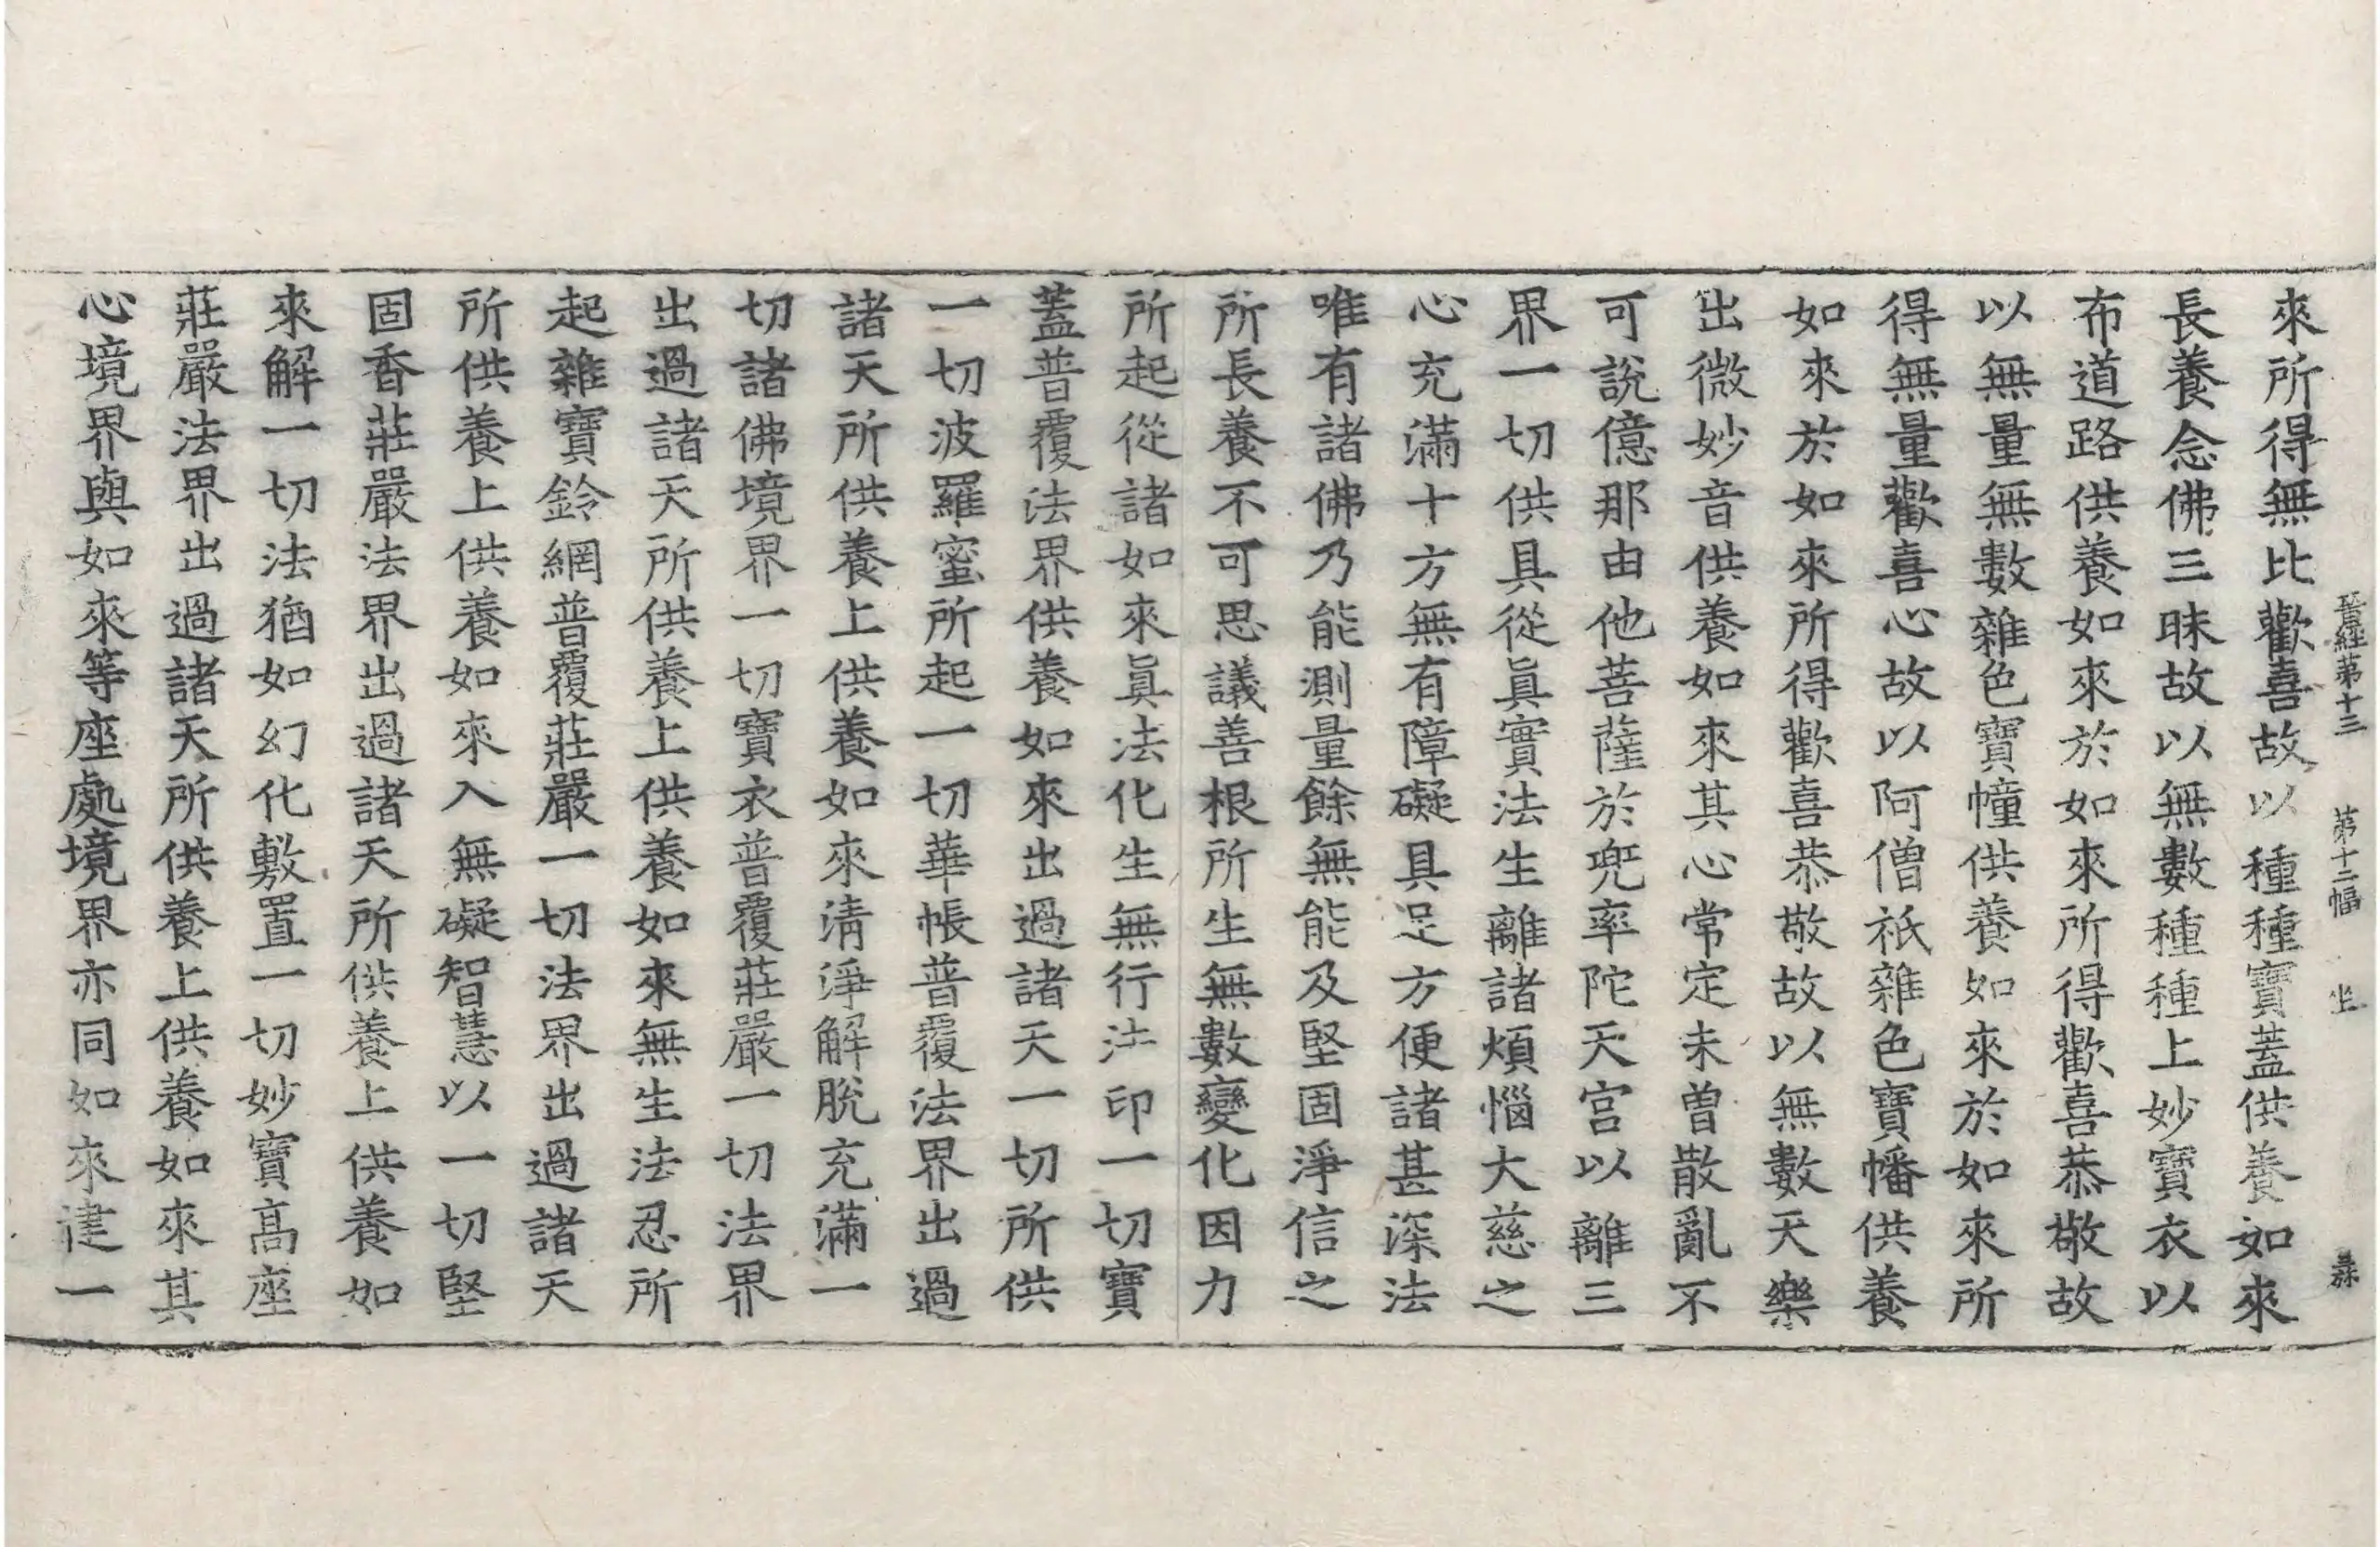 晉經第十三 第十二幅 坐 
來所得無比歡喜故以種種寶蓋供養如來
長養念佛三昧故以無數種種上妙寶衣以
布道路供養如來於如來所得歡喜恭敬故
以無量無數雜色寶幢供養如來於如來所
得無量歡喜心故以阿僧祇雜色寶幡供養
如來於如來所得歡喜恭敬故以無數天樂
出微妙音供養如來其心常定未曾散亂不
可說億那由他菩薩於兜率陀天宮以離三
界一切供具從眞實法生離諸煩惱大慈之
心充滿十方無有障礙具足方便諸甚深法
唯有諸佛乃能測量餘無能及堅固淨信之
所長養不可思議善根所生無數變化因力
所起從諸如來眞法化生無行法印一切寶
蓋普覆法界供養如來出過諸天一切所供
一切波羅蜜所起一切華帳普覆法界出過
諸天所供養上供養如來淸淨解脫充滿一
切諸佛境界一切寶衣普覆莊嚴一切法界
出過諸天所供養上供養如來無生法忍所
起雜寶鈴網普覆莊嚴一切法界出過諸天
所供養上供養如來入無礙智慧以一切堅
固香莊嚴法界出過諸天所供養上供養如
來解一切法猶如幻化敷置一切妙寶高座
莊嚴法界出過諸天所供養上供養如來其
心境界與如來等座處境界亦同如來建一